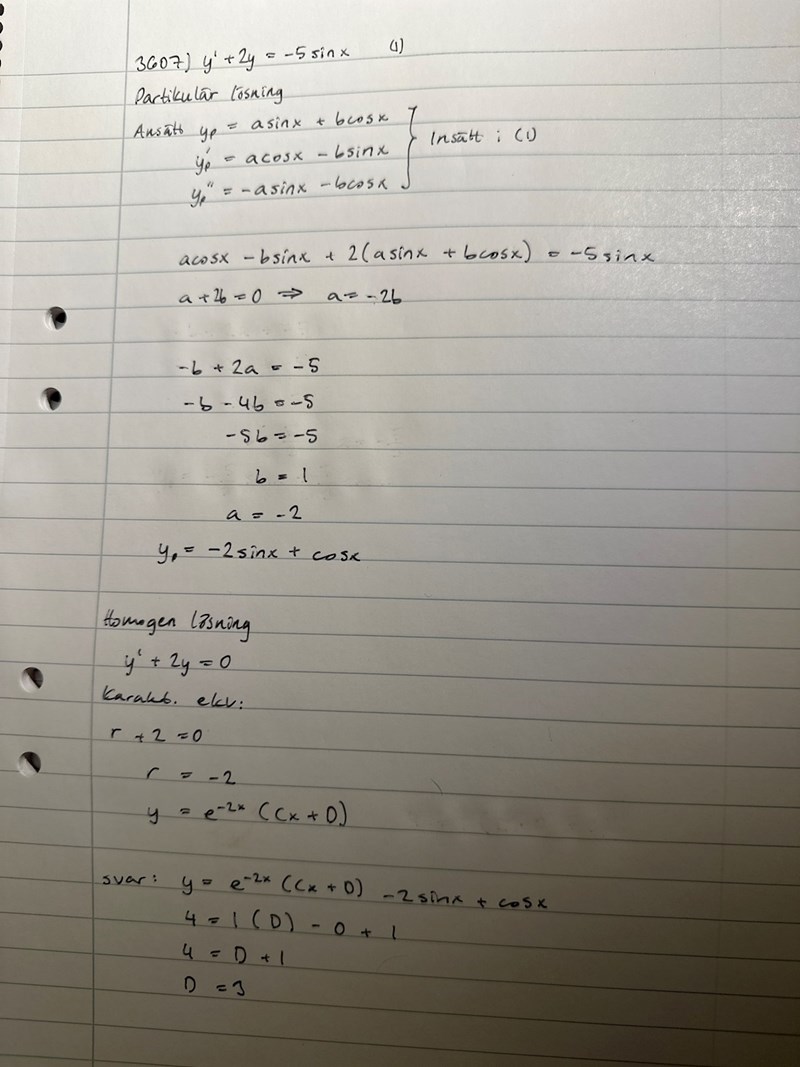 3607) y' + 2y = -5 sinx (1)
Partikulär lösning
Ansätt yp = asinx + bcosx
yp' = acosx - bsinx } Insätt i (1)
yp'' = -asinx - bcosx
acosx - bsinx + 2(asinx + bcosx) = -5 sinx
a + 2b = 0 ⇒ a = -2b
-b + 2a = -5
-b - 4b = -5
-5b = -5
b = 1
a = -2
yp = -2sinx + cosx
Homogen lösning
y' + 2y = 0
Karakt. ekv:
r + 2 = 0
r = -2
y = e^-2x (Cx + D)
svar: y = e^-2x (Cx + D) - 2sinx + cosx
4 = 1(D) - 0 + 1
4 = D + 1
D = 3